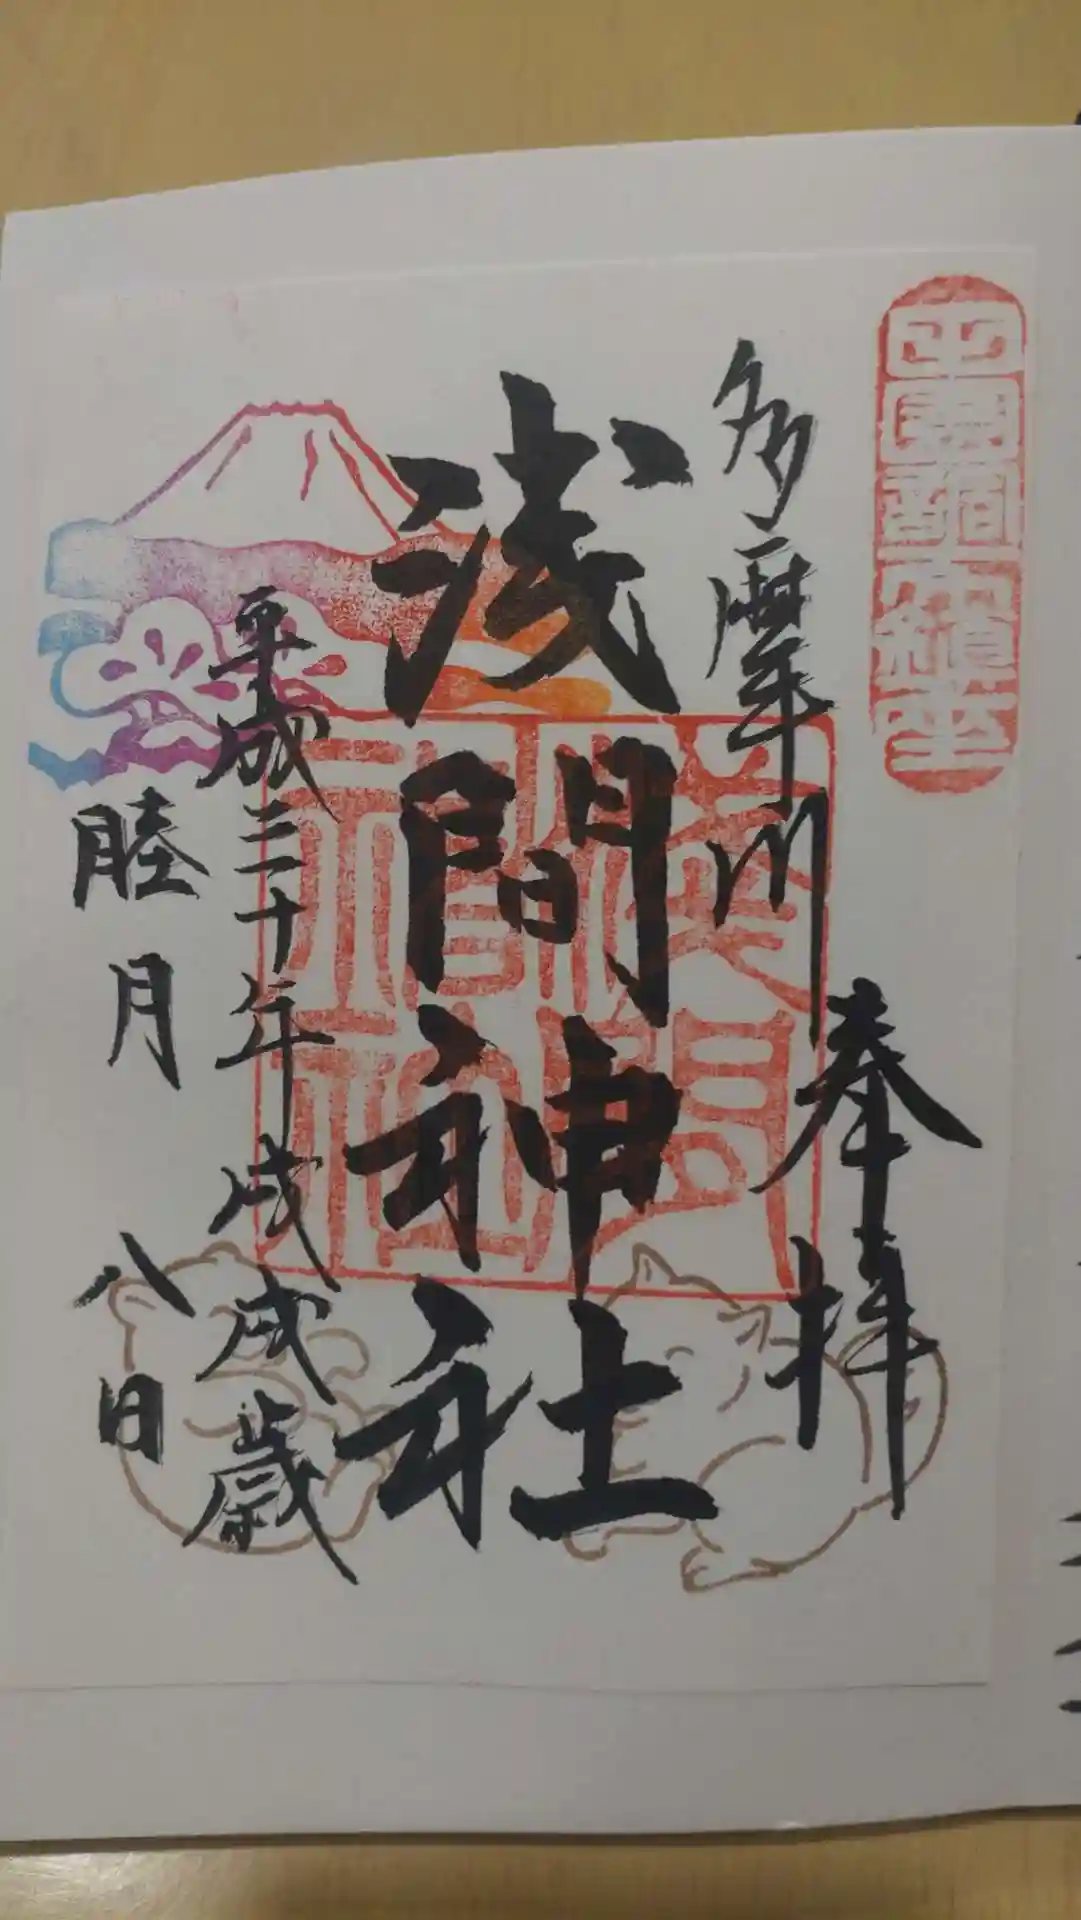 田園調布鎮座
奉拝
多摩川
浅間神社
平成三十年戊戌歳
睦月
八日